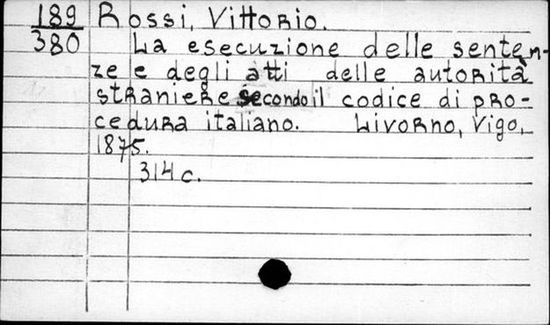 189 Rossi, Vittorio.
380 La esecuzione delle senten-
ze e degli atti delle autorità
straniere secondo il codice di pro-
cedura italiano. Livorno, Vigo,
1875.
314 c.